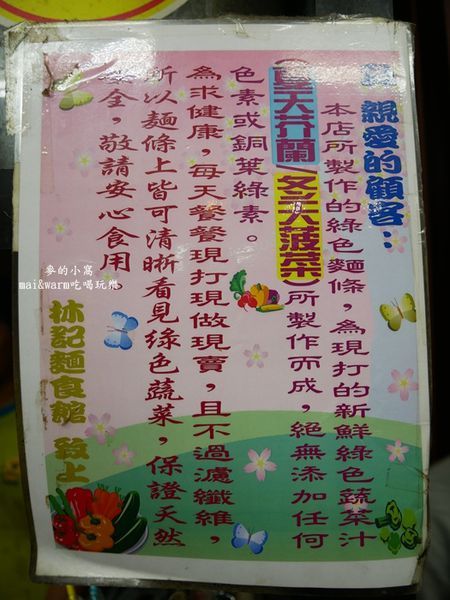 親愛的顧客：
本店所製作的綠色麵條，為現打的新鮮綠色蔬菜汁
(夏天芥蘭/冬天菠菜)所製作而成，絕無添加任何
色素或銅葉綠素。
為求健康，每天餐餐現打現做現賣，且不過濾纖維，
所以麵條上皆可清晰看見綠色蔬菜，保證天然
安全，敬請安心食用
林記麵食館 敬上
麥的小窩
mai&warm吃喝玩樂